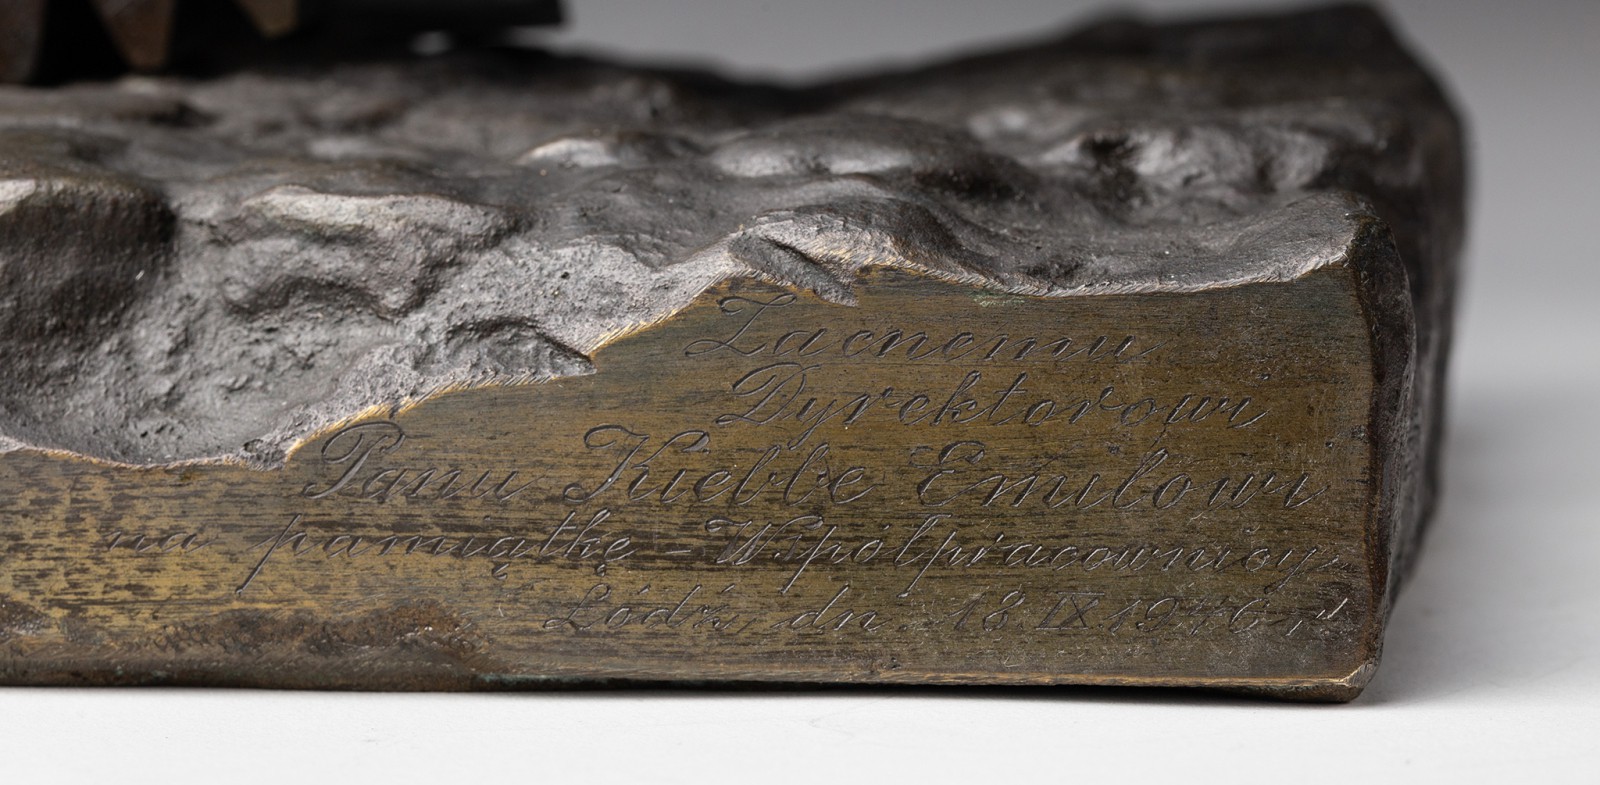 Zacnemu
Dyrektorowi
Panu Kiebbe Emilowi
na pamiątkę - Współpracownicy
Łódź, dn. 18.IX.1946 r